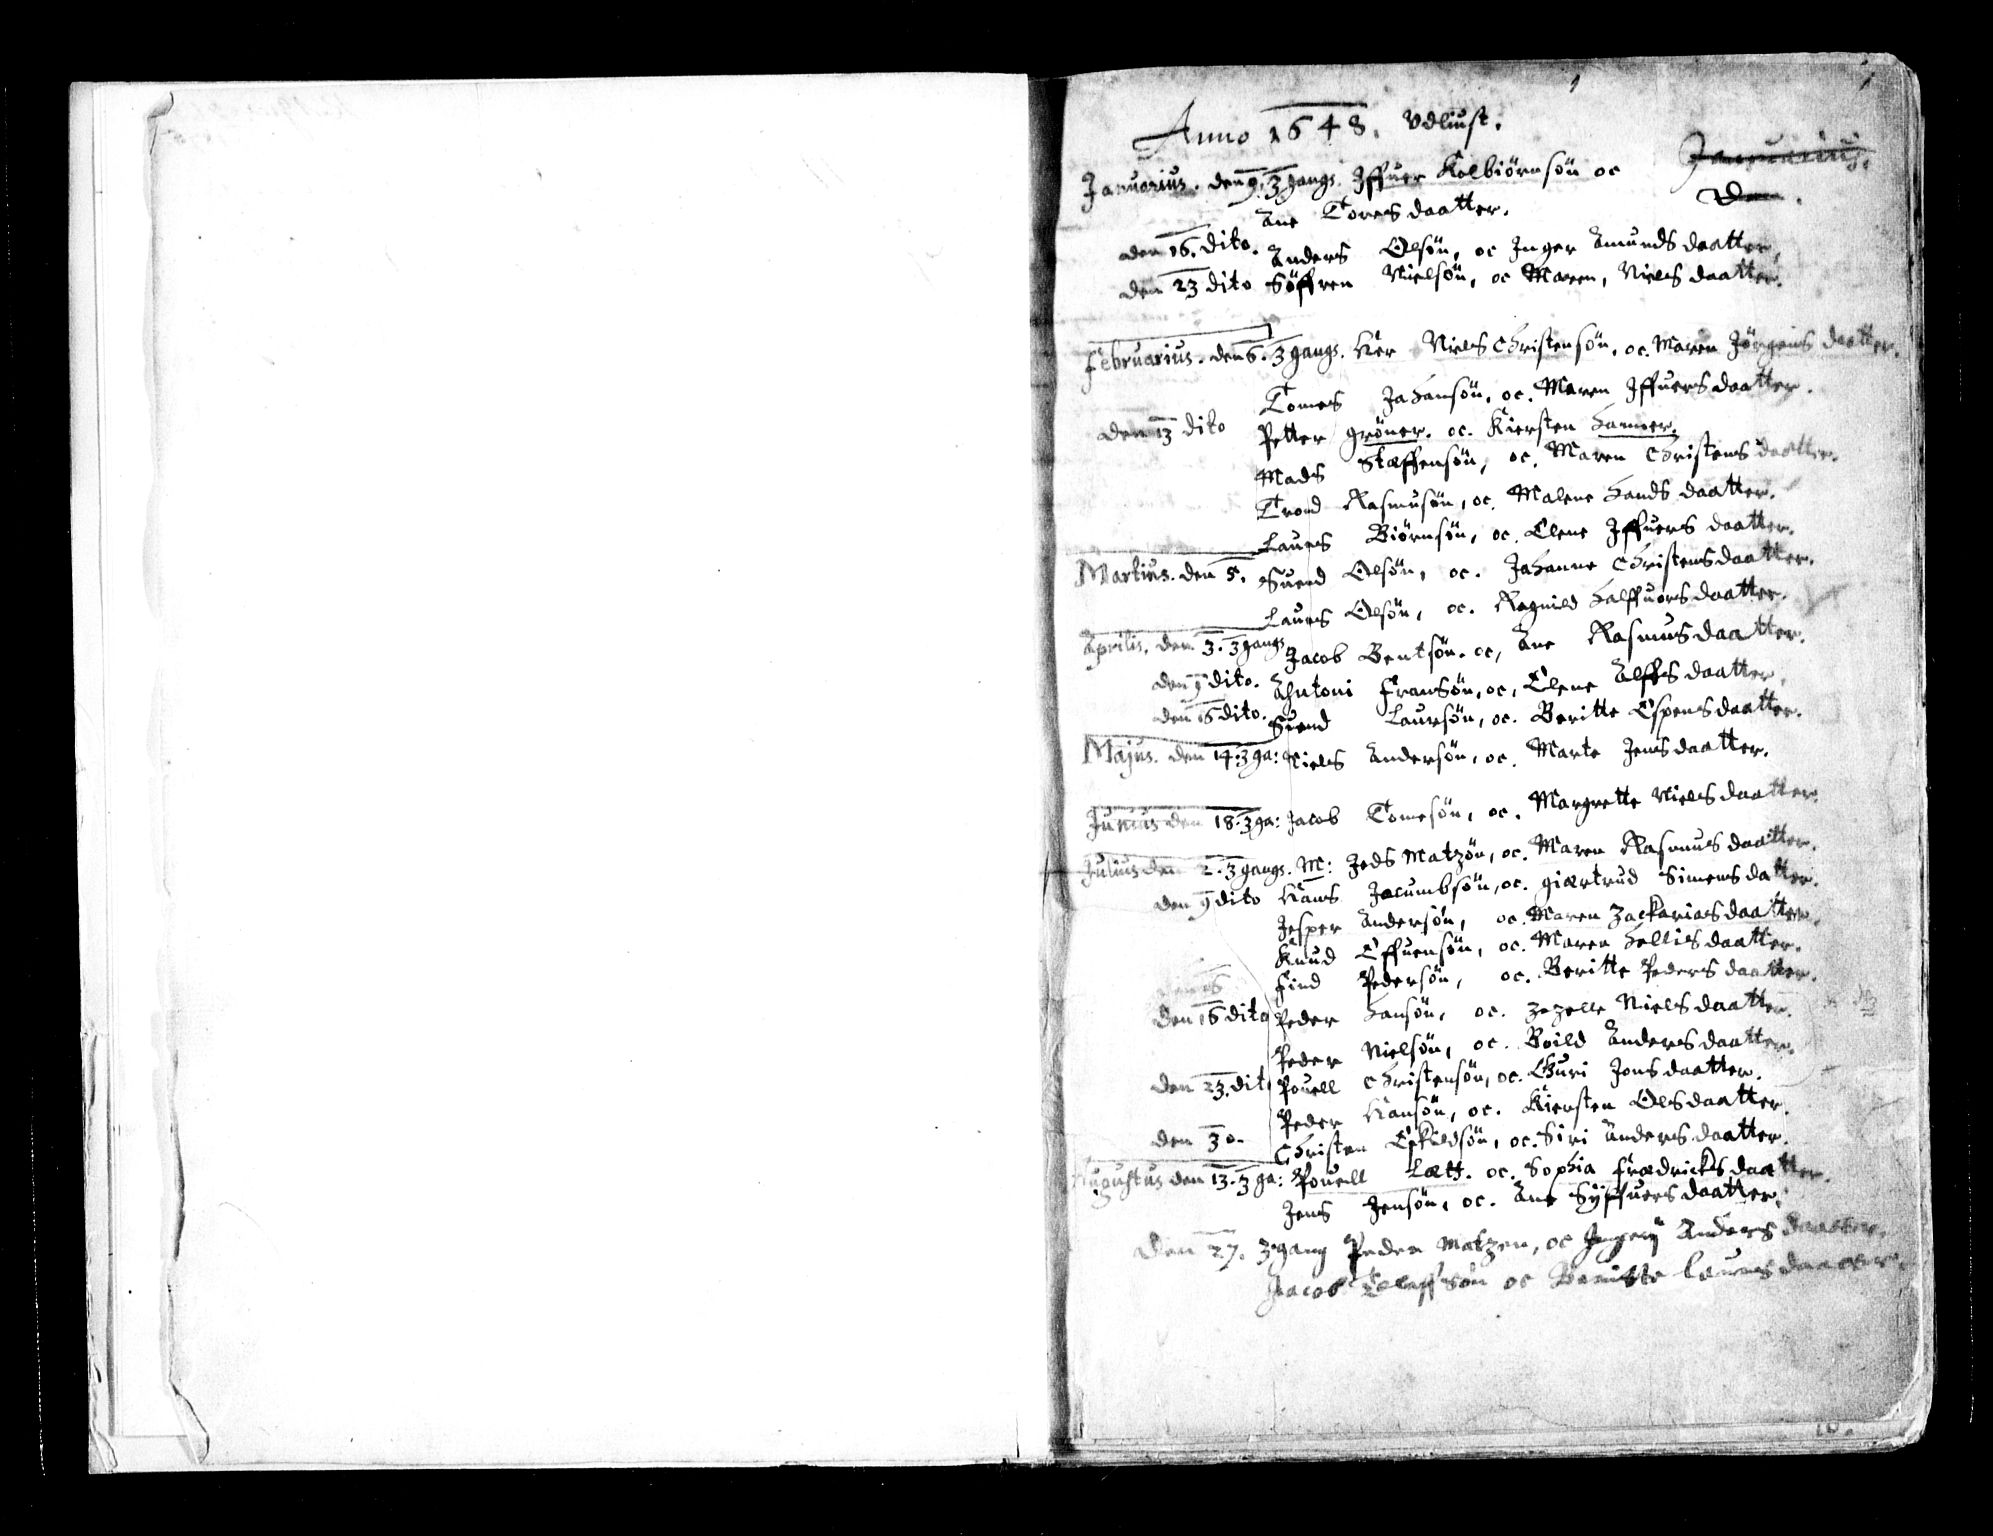 Anno 1648. Vdliust.
Januarius.
Den.
Januarius. den 9. 3 gangs. Jffuer Kolbiörnsön oc
Ane Tores daatter.
den 16. dito. Anders Olsön, oc Inger Amunds daatter,
den 23 dito Söffren Nielsön, oc Maren, Niels daatter.
Februarius. den 6. 3 gangs. Her Niels Christensön, oc. Maren Jörgens daatter.
Tomes Johansön, oc. Maren Jffuers daatter.
den 13 dito Petter gröner. oc. Kiersten
Mads Staffensön, oc. Maren Christens daatter.
Trond Rasmusön, oc. Malene Hands daatter.
Laures Biörnsön, oc. Elene Jffuers daatter.
Martius. den 5. Suend Olsön, oc. Johanne Christens daatter.
Laures Olsön, oc. Ragnild Halffuors daatter.
Aprilis. den 3. 3 gangs Jacob Bentsön. oc, Ane Rasmus daatter.
den 9 dito. Antoni Fransön, oc, Elene Alffs daatter,
den 16 dito. Suend Laursön, oc. Beritte Espens daatter.
Majus. den 14. 3 ga: Niels Andersön, oc. Marte Jens daatter.
Junius den 18. 3 ga: Jacob Tomesön, oc. Margrette Niels daatter.
Julius den 2. 3 gangs. M: Jeds Matzön, oc. Maren Rasmus daatter.
den 9 dito Hans Jacumbsön, oc. giærtrud Simens datter.
Jesper Andersön, oc. Maren Zackarias daatter.
Knud Effuensön, oc. Maren Hellis daatter.
Find Pedersön, oc. Beritte Peders daatter.
den 16 dito Peder Hansön, oc. Zezelle Niels daatter.
Peder Nielsön, oc. Boild Anders daatter.
den 23. dito Pouell Christensön, oc. Guri Jons daatter.
Peder Hansön, oc. Kiersten Ols daatter.
den 30. Christen Eskildsön, oc. Siri Anders daatter.
Augustus den 13. 3 ga: Pouell Lætt. oc. Sophia Fredricks daatter.
Jens Jensön, oc. Ane Syffuers daatter.
Den 27. 3 gang Peder Matzen, oc Anders daatter.
Jacob oc Beritte Laures daatter.